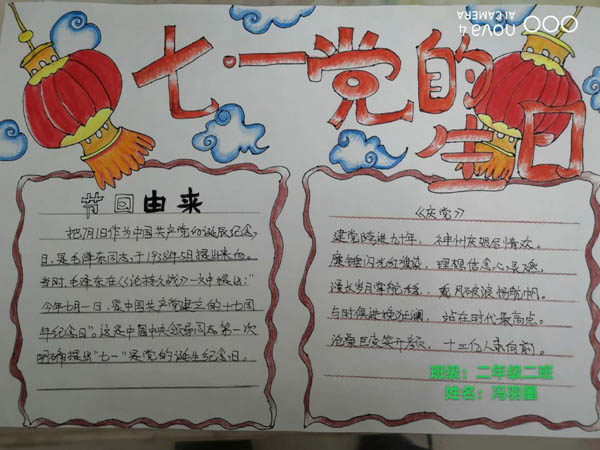 七·一党的
生日
节回由来
把7月1日作为中国共产党的诞辰纪念
日,是毛泽东同志于1938年5月提出来的。
当时,毛泽东在《论持久战》一文中提出:"
今年七月一日,是中国共产党建立的十七周
年纪念日"。这是中国中央领导同志第一次
明确提出"七一"是党的诞生纪念日。
《庆党》
建党跨进九十年,神州大地尽情欢。
镰锤闪光的旗帜,理想信念
漫长岁月掌舵手,乘风破浪扬帆帆。
与时俱进挽狂澜,站在时代最高点。
沧桑巨变笑开颜,十三亿人勇向前。
班级:二年级二班
姓名:冯羽墨
nova 4
AI CAMERA